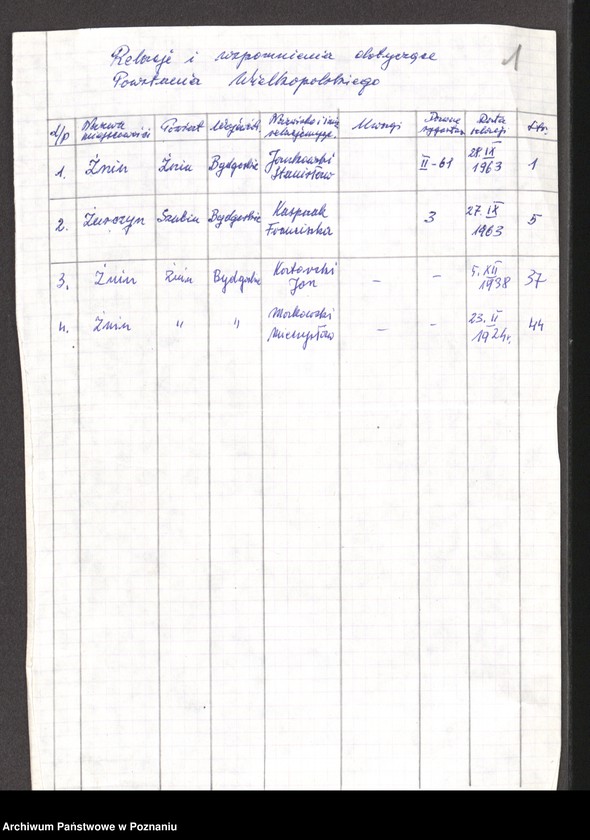 Relacje i wspomnienia dotyczące 1
Powstania Wielkopolskiego
L/p Nazwa miejscowości Powiat Wojewódz. Nazwisko i imię relacjonując. Uwagi Dawna sygnatura Data relacji Str.
1. Żnin Żnin Bydgoskie Jankowski Stanisław II-61 28.IX 1963 1
2. Żurczyn Szubin Bydgoskie Kasprzak Franciszka 3 27.IX 1963 5
3. Żnin Żnin Bydgoskie Kotowski Jan - - 5.XII 1938 37
4. Żnin " " Morkowski Mieczysław - - 23.II 1924r. 44
Archiwum Państwowe w Poznaniu